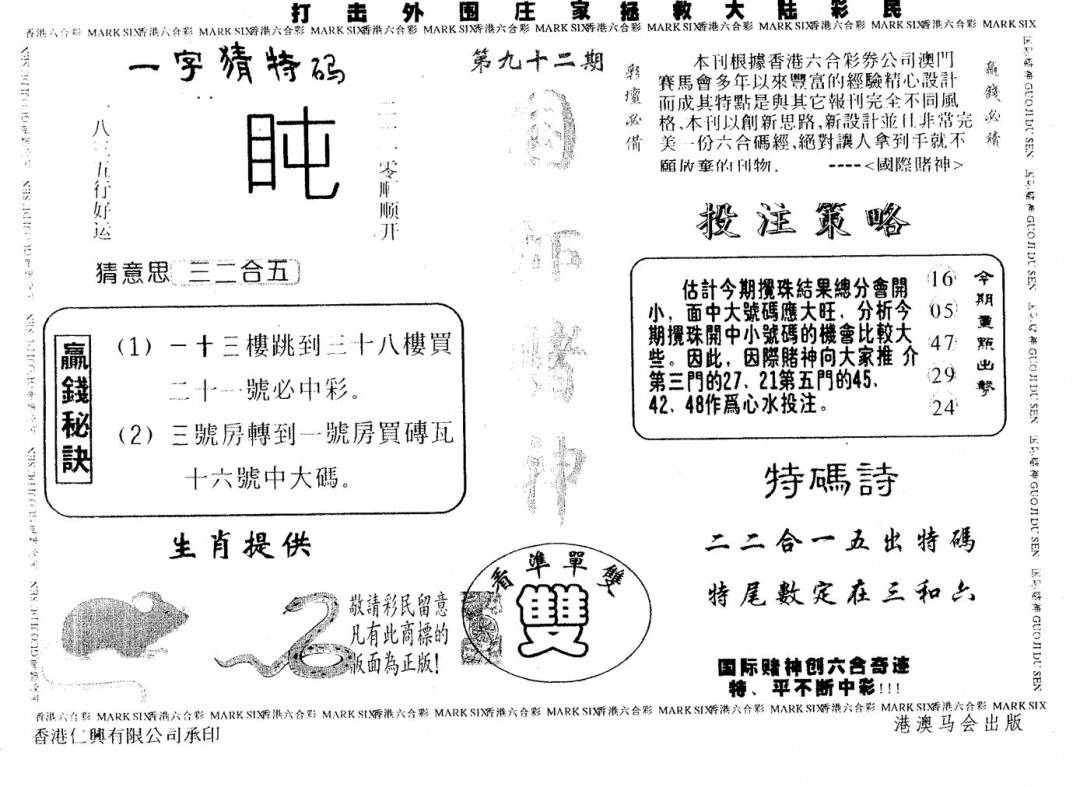 打击外围庄家拯救大陆彩民
香港六合彩 MARK SIX香港六合彩 MARK SIX香港六合彩 MARK SIX香港六合彩 MARK SIX香港六合彩 MARK SIX香港六合彩 MARK SIX香港六合彩 MARK SIX香港六合彩 MARK SIX香港六合彩 MARK SIX
一字猜特码
盹
八三五行好运
二二一零顺顺开
猜意思 三二合五
第九十二期
彩壇必備
赢錢必讀
本刊根據香港六合彩券公司澳門
賽馬會多年以來豐富的經驗精心設計
而成其特點是與其它報刊完全不同風
格、本刊以創新思路,新設計並且非常完
美一份六合碼經,絕對讓人拿到手就不
願放棄的刊物. ----<國際賭神>
投注策略
估計今期攪珠結果總分會開
小，面中大號碼應大旺，分析今
期攪珠開中小號碼的機會比較大
些。因此，因際賭神向大家推 介
第三門的27、21第五門的45、
42、48作爲心水投注。
16
05
47
29
24
今期重點出擊
贏錢秘訣
(1) 一十三樓跳到三十八樓買
二十一號必中彩。
(2) 三號房轉到一號房買磚瓦
十六號中大碼。
国际赌神
特碼詩
二二合一五出特碼
特尾數定在三和六
生肖提供
敬請彩民留意
凡有此商標的
版面為正版!
看準單雙
雙
国际赌神创六合奇迹
特、平不断中彩!!!
香港六合彩 MARK SIX香港六合彩 MARK SIX香港六合彩 MARK SIX香港六合彩 MARK SIX香港六合彩 MARK SIX香港六合彩 MARK SIX香港六合彩 MARK SIX香港六合彩 MARK SIX香港六合彩 MARK SIX
香港仁興有限公司承印
港澳马会出版